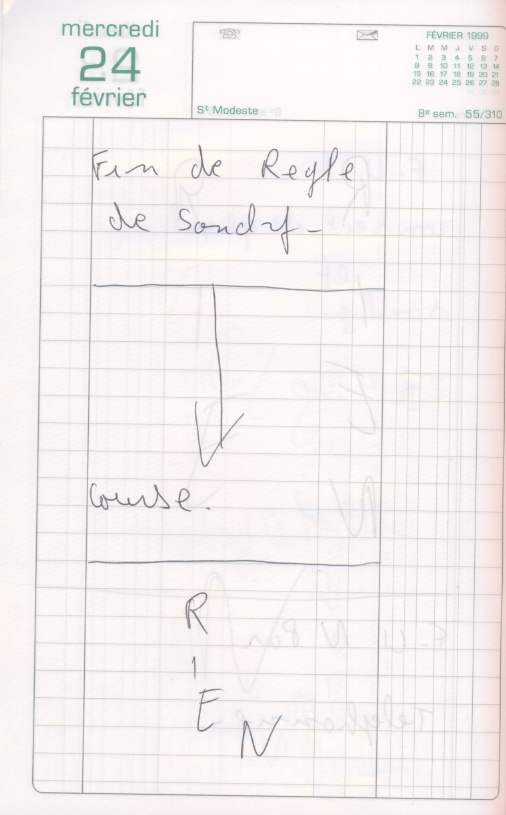 mercredi
24
février
FÉVRIER 1999
L M M J V S D
1 2 3 4 5 6 7
8 9 10 11 12 13 14
15 16 17 18 19 20 21
22 23 24 25 26 27 28
St Modeste
8e sem. 55/310
Fin de Regle
de
Course.
R
I
E
N